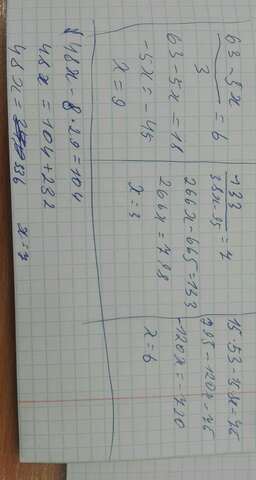 63-5x
3
=6
63-5x=18
-5x=-45
x=9
133
38x-95
=7
266x-665=133
266x=798
x=3
795-120x=75
-120x=-720
x=6
48x-8·29=104
48x=104+232
48x=336 x=7